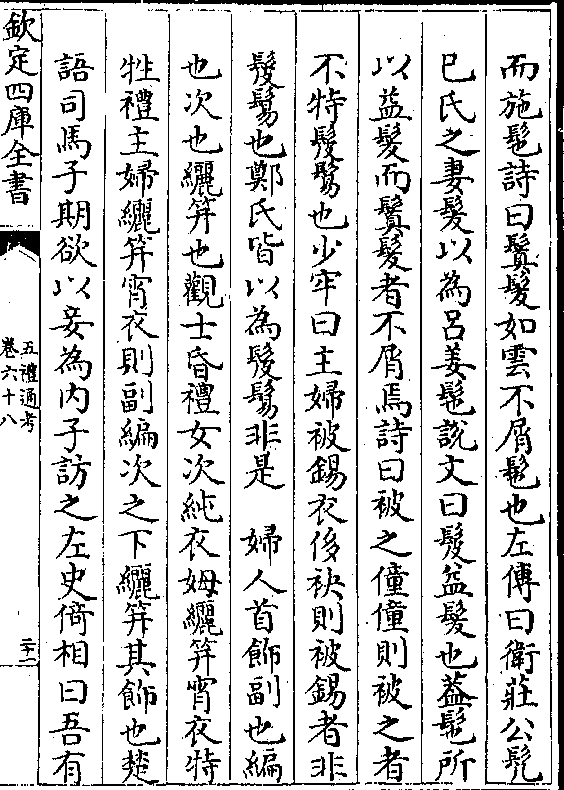 而施髢詩曰鬒髮如雲不屑髢也左傳曰衛莊公髠
巳氏之妻髮以為呂姜髢說文曰髲益髮也葢髢所
以益髮而鬒髮者不屑焉詩曰被之僮僮則被之者
不特髲鬄也少牢曰主婦被錫衣侈袂則被錫者非
髲鬄也鄭氏皆以為髲鬄非是　婦人首飾副也編
也次也纚笄也觀士昏禮女次純衣姆纚笄宵衣特
牲禮主婦纚笄宵衣則副編次之下纚笄其飾也楚
語司馬子期欲以妾為内子訪之左史倚相曰吾有
欽定四庫全書
五禮通考
卷六十八
二十二